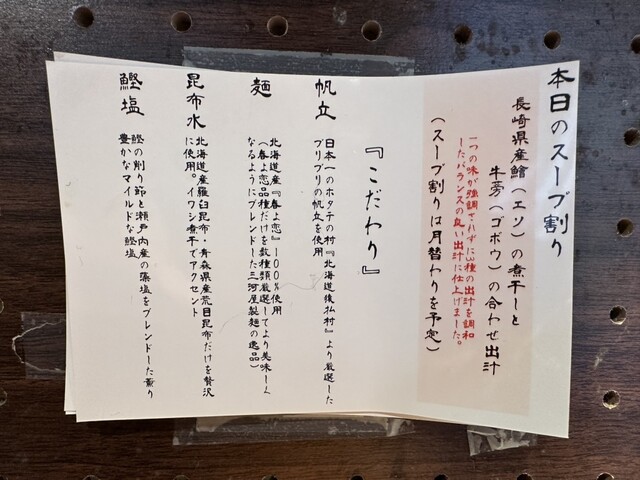 本日のスープ割り
長崎県産鱠(エソ)の煮干しと
牛蒡(ゴボウ)の合わせ出汁
一つの味が強調されずに3種の出汁を調和
したバランスの良い出汁に仕上げました。
(スープ割りは月替わりを予定)
『こだわり』
帆立
日本一のホタテの村『北海道猿払村』より厳選した
プリプリの帆立を使用
麺
北海道産『春よ恋』100%使用
(春よ恋品種だけを数種類厳選してより美味しく
なるようにブレンドした三河屋製麺の逸品)
昆布水
北海道産羅臼昆布・青森県産荒目昆布だけを贅沢
に使用。イワシ煮干でアクセント
鰹塩
鰹の削り節と瀬戸内産の藻塩をブレンドした薫り
豊かなマイルドな鰹塩